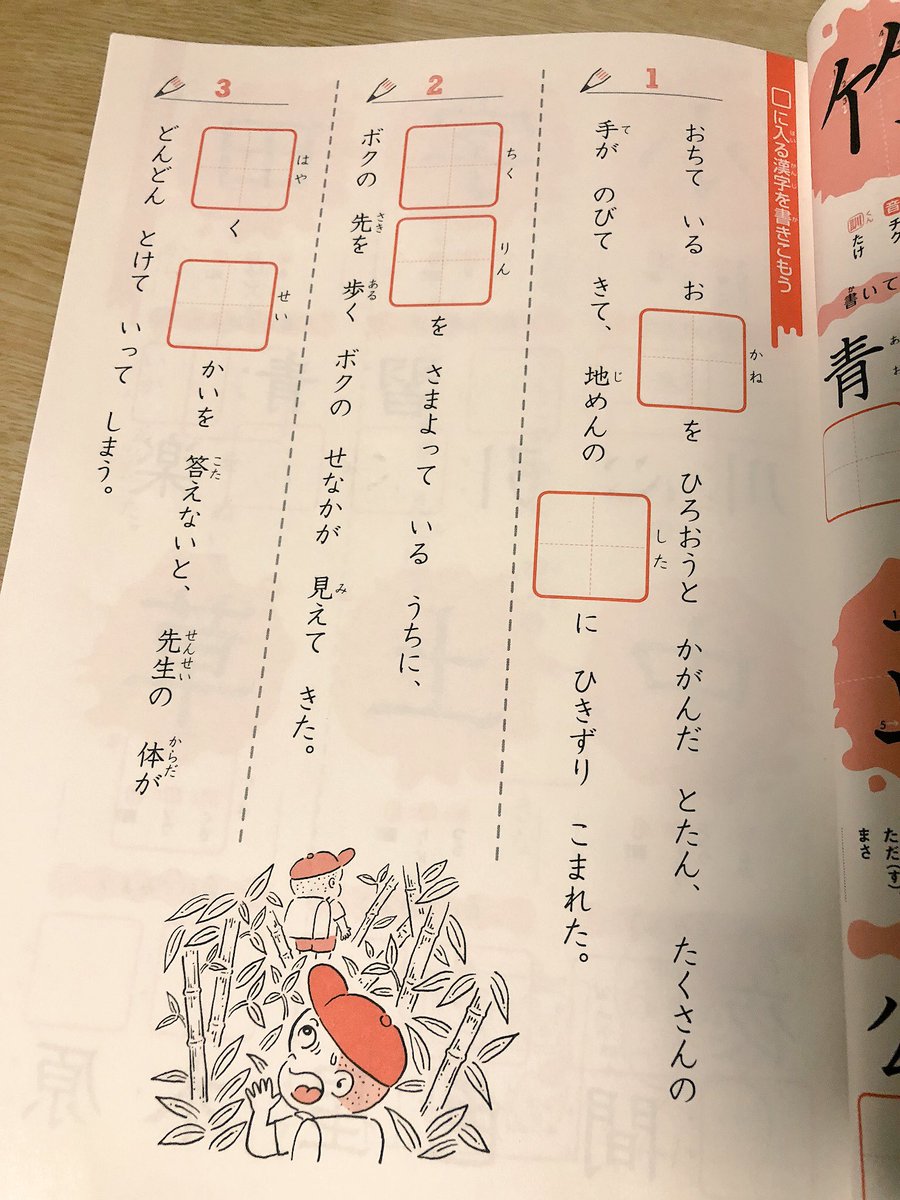 □に入る漢字を書きこもう
はい
かんじ
か
1
おちて いる お□を ひろおうと かがんだ とたん、 たくさんの
かね
手が のびて きて、 地めんの □に ひきずり こまれた。
て
じ
した
2
□□を さまよって いる うちに、
ちく
りん
ボクの 先を 歩く ボクの せなかが 見えて きた。
さき
ある
み
3
□く □かいを 答えないと、 先生の 体が
はや
せい
こた
せんせい
からだ
どんどん とけて いって しまう。
音
チク
訓
くん
たけ
書いて
か
青
ただ(す)
まさ